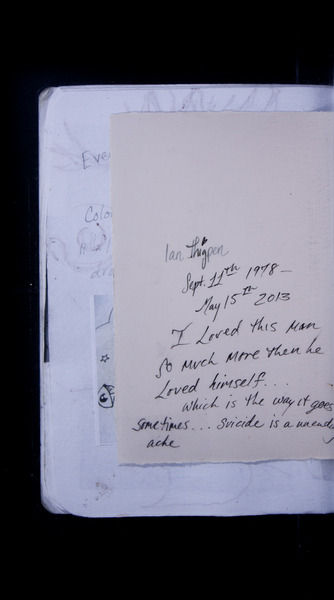 Eve
Colo
dra
Ian Thigpen
Sept. 11th 1978 -
May 15th 2013
I Loved this Man
So Much More then he
Loved himself...
which is the way it goes
sometimes... Suicide is a unend
ache